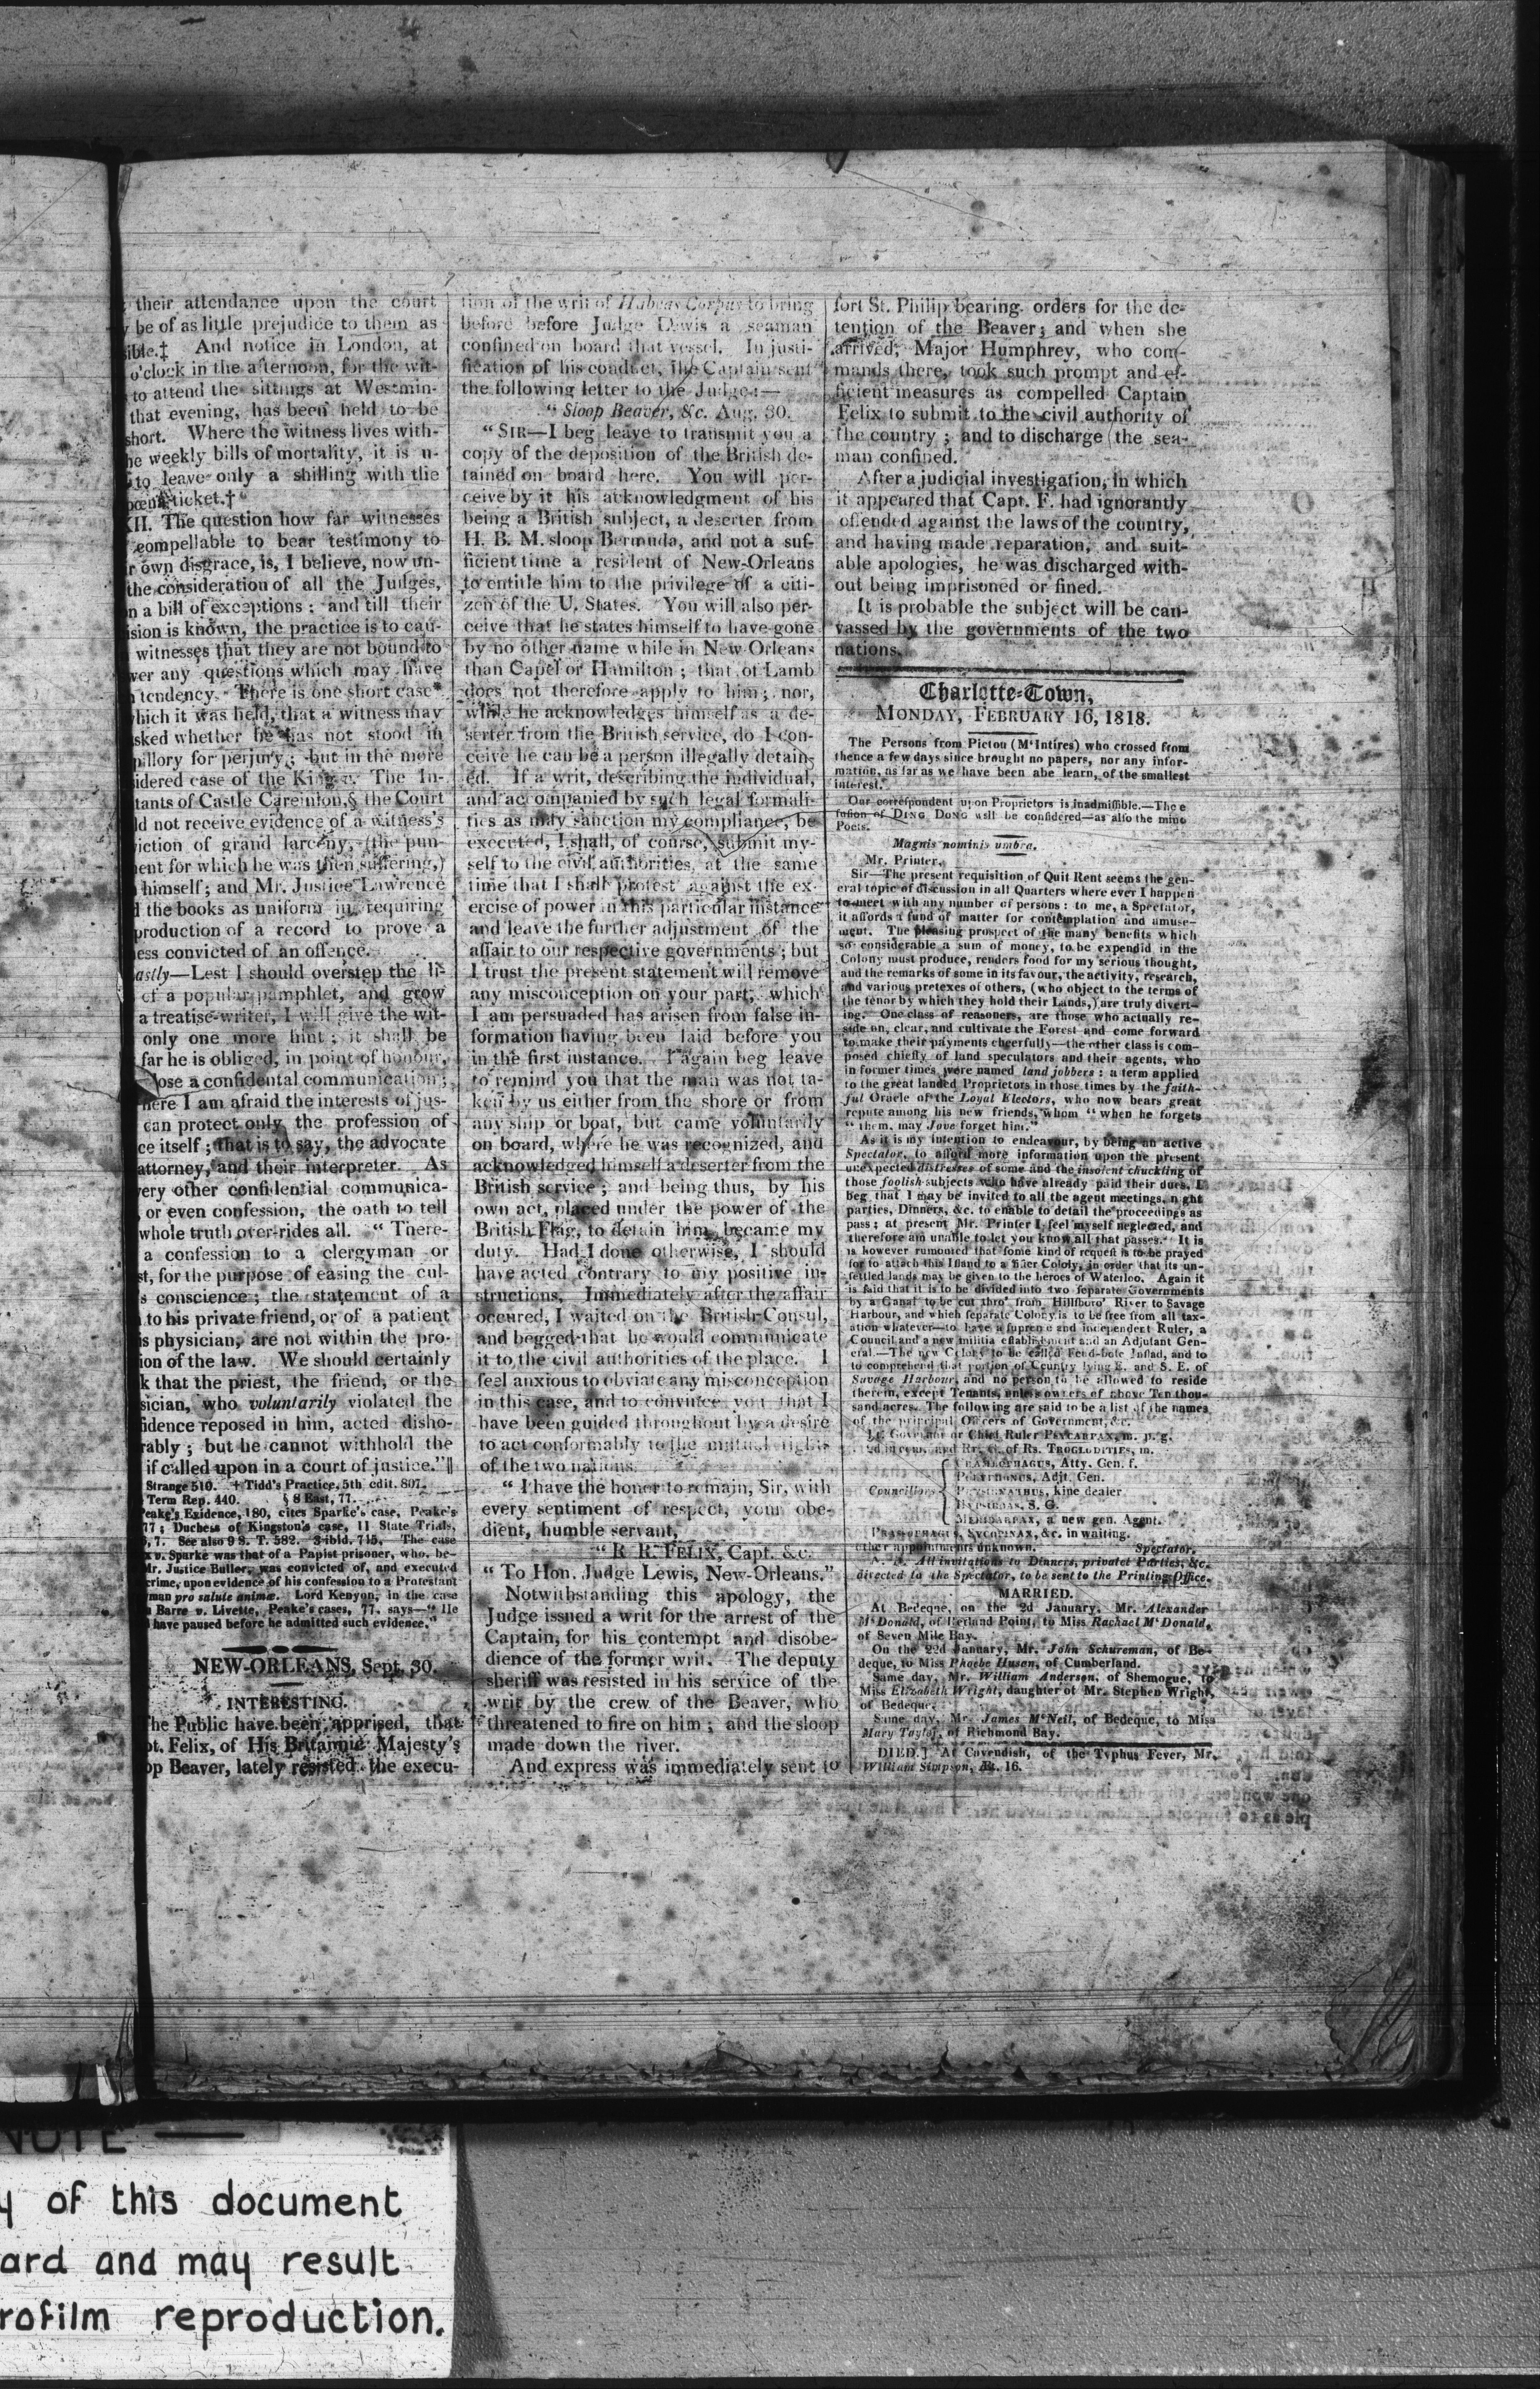 their attendance upon the court
be of as little prejudice to them as
ible.‡ And notice in London, at
o'clock in the afternoon, for the wit-
to attend the sittings at Westmin-
that evening, has been held to be
short. Where the witness lives with-
he weekly bills of mortality, it is u-
to leave only a shilling with the
poena ticket.†
II. The question how far witnesses
compellable to bear testimony to
r own disgrace, is, I believe, now un-
the consideration of all the Judges,
n a bill of exceptions; and till their
ision is known, the practice is to cau-
witnesses that they are not bound to
wer any questions which may have
tendency. There is one short case*
hich it was held, that a witness may
sked whether he has not stood in
pillory for perjury; but in the more
idered case of the King v. The In-
tants of Castle Careinion,§ the Court
ld not receive evidence of a witness's
iction of grand larceny, (the pun-
ent for which he was then suffering,)
himself; and Mr. Justice Lawrence
the books as uniform in requiring
production of a record to prove a
ess convicted of an offence.
astly—Lest I should overstep the li-
of a popular pamphlet, and grow
a treatise-writer, I will give the wit-
only one more hint; it shall be
far he is obliged, in point of honour,
lose a confidental communication;
here I am afraid the interests of jus-
can protect only the profession of
ce itself; that is to say, the advocate
attorney, and their interpreter. As
very other confidential communica-
, or even confession, the oath to tell
whole truth over-rides all. "There-
a confession to a clergyman or
st, for the purpose of easing the cul-
s conscience; the statement of a
to his private friend, or of a patient
is physician, are not within the pro-
ion of the law. We should certainly
k that the priest, the friend, or the
sician, who voluntarily violated the
fidence reposed in him, acted disho-
rably; but he cannot withhold the
if called upon in a court of justice."||
Strange 510. † Tidd's Practice, 5th edit. 807.
Term Rep. 440. § 8 East, 77.
Peake's Evidence, 180, cites Sparke's case, Peake's
77; Duchess of Kingston's case, 11 State Trials,
, 7. See also 9 S. T. 582. 3 ibid. 715. The case
x v. Sparke was that of a Papist prisoner, who, be-
Mr. Justice Buller, was convicted of, and executed
crime, upon evidence of his confession to a Protestant
yman pro salute animæ. Lord Kenyon, in the case
Barre v. Livette, Peake's cases, 77, says—"He
have paused before he admitted such evidence."
NEW-ORLEANS, Sept. 30.
INTERESTING.
The Public have been apprised, that
pt. Felix, of His Britannic Majesty's
op Beaver, lately resisted the execu-
tion of the writ of Habeas Corpus to bring
before before Judge Lewis a seaman
confined on board that vessel. In justi-
fication of his conduct, the Captain sent
the following letter to the Judge:—
"Sloop Beaver, &c. Aug. 30.
"SIR—I beg leave to transmit you a
copy of the deposition of the British de-
tained on board here. You will per-
ceive by it his acknowledgment of his
being a British subject, a deserter from
H. B. M. sloop Bermuda, and not a suf-
ficient time a resident of New-Orleans
to entitle him to the privilege of a citi-
zen of the U. States. You will also per-
ceive that he states himself to have gone
by no other name while in New-Orleans
than Capel or Hamilton; that of Lamb
does not therefore apply to him; nor,
while he acknowledges himself as a de-
serter from the British service, do I con-
ceive he can be a person illegally detain-
ed. If a writ, describing the individual,
and accompanied by such legal formali-
ties as may sanction my compliance, be
executed, I shall, of course, submit my-
self to the civil authorities, at the same
time that I shall protest against the ex-
ercise of power in this particular instance
and leave the further adjustment of the
affair to our respective governments; but
I trust the present statement will remove
any misconception on your part, which
I am persuaded has arisen from false in-
formation having been laid before you
in the first instance. I again beg leave
to remind you that the man was not ta-
ken by us either from the shore or from
any ship or boat, but came voluntarily
on board, where he was recognized, and
acknowledged himself a deserter from the
British service; and being thus, by his
own act, placed under the power of the
British Flag, to detain him, became my
duty. Had I done otherwise, I should
have acted contrary to my positive in-
structions. Immediately after the affair
occured, I waited on the British Consul,
and begged that he would communicate
it to the civil authorities of the place. I
feel anxious to obviate any misconception
in this case, and to convince you that I
have been guided throughout by a desire
to act conformably to the mutual rights
of the two nations.
"I have the honor to remain, Sir, with
every sentiment of respect, your obe-
dient, humble servant,
"R. R. FELIX, Capt. &c.
"To Hon. Judge Lewis, New-Orleans."
Notwithstanding this apology, the
Judge issued a writ for the arrest of the
Captain, for his contempt and disobe-
dience of the former writ. The deputy
sheriff was resisted in his service of the
writ by the crew of the Beaver, who
threatened to fire on him; and the sloop
made down the river.
And express was immediately sent to
fort St. Philip bearing orders for the de-
tention of the Beaver; and when she
arrived, Major Humphrey, who com-
mands there, took such prompt and ef-
ficient measures as compelled Captain
Felix to submit to the civil authority of
the country; and to discharge the sea-
man confined.
After a judicial investigation, in which
it appeared that Capt. F. had ignorantly
offended against the laws of the country,
and having made reparation, and suit-
able apologies, he was discharged with-
out being imprisoned or fined.
It is probable the subject will be can-
vassed by the governments of the two
nations.
Charlotte-Town,
MONDAY, FEBRUARY 16, 1818.
The Persons from Pictou (M'Intires) who crossed from
thence a few days since brought no papers, nor any infor-
mation, as far as we have been abe learn, of the smallest
interest.
Our correspondent upon Proprietors is inadmissible.—The e
fusion of DING DONG will be considered—as also the mino
Poets.
Magnis nominis umbra.
Mr. Printer,
Sir—The present requisition of Quit Rent seems the gen-
eral topic of discussion in all Quarters where ever I happen
to meet with any number of persons: to me, a Spectator,
it affords a fund of matter for contemplation and amuse-
ment. The pleasing prospect of the many benefits which
so considerable a sum of money, to be expendid in the
Colony must produce, renders food for my serious thought,
and the remarks of some in its favour, the activity, research,
and various pretexes of others, (who object to the terms of
the tenor by which they hold their Lands,) are truly divert-
ing. One class of reasoners, are those who actually re-
side on, clear, and cultivate the Forest and come forward
to make their payments cheerfully—the other class is com-
posed chiefly of land speculators and their agents, who
in former times were named land jobbers: a term applied
to the great landed Proprietors in those times by the faith-
ful Oracle of the Loyal Electors, who now bears great
repute among his new friends, whom "when he forgets
"them, may Jove forget him."
As it is my intention to endeavour, by being an active
Spectator, to afford more information upon the present
unexpected distresses of some and the insolent chuckling of
those foolish subjects who have already paid their dues, I
beg that I may be invited to all the agent meetings, n ght
parties, Dinners, &c. to enable to detail the proceedings as
pass; at present Mr. Printer I feel myself neglected, and
therefore am unable to let you know all that passes. It is
is however rumoured that some kind of request is to be prayed
for to attach this Island to a Cololy, in order that its un-
settled lands may be given to the heroes of Waterloo. Again it
is said that it is to be divided into two separate Governments
by a Canal to be cut thro' from Hillsboro' River to Savage
Harbour, and which separate Colony is to be free from all tax-
ation whatever—to have a supreme and independent Ruler, a
Council and a new militia establishment and an Adjutant Gen-
eral.—The new Colony to be called, and to
to comprehend that portion of Country lying E. and S. E. of
Savage Harbour, and no person to be allowed to reside
therein, except Tenants, unless owners of above Ten thou-
sand acres. The following are said to be a list of the names
of the principal Officers of Government, &c.
Lt. Governor or Chief Ruler PSYCARPAX, m. p. g.
of Rs. TROGLODITIES, m.
Atty. Gen. f.
Adjt. Gen.
Councillors kine dealer
S. G.
MERIDARPAX, a new gen. Agent.
&c. in waiting.
Other appointments unknown. Spectator.
N. B. All invitations to Dinners, privatet Parties, &c.
directed to the Spectator, to be sent to the Printing Office.
MARRIED.
At Bedeque, on the 2d January, Mr. Alexander
M'Donald, of Point, to Miss Rachael M'Donald,
of Seven Mile Bay.
On the 22d January, Mr. John Schureman, of Be-
deque, to Miss Phoebe Husen, of Cumberland.
Same day, Mr. William Anderson, of Shemogue, to
Miss Elizabeth Wright, daughter of Mr. Stephen Wright,
of Bedeque.
Same day, Mr. James M'Neil, of Bedeque, to Miss
Mary Taylor, of Richmond Bay.
DIED.] At Cavendish, of the Typhus Fever, Mr.
William Simpson, Æt. 16.
NOTE —
y of this document
ard and may result
rofilm reproduction.